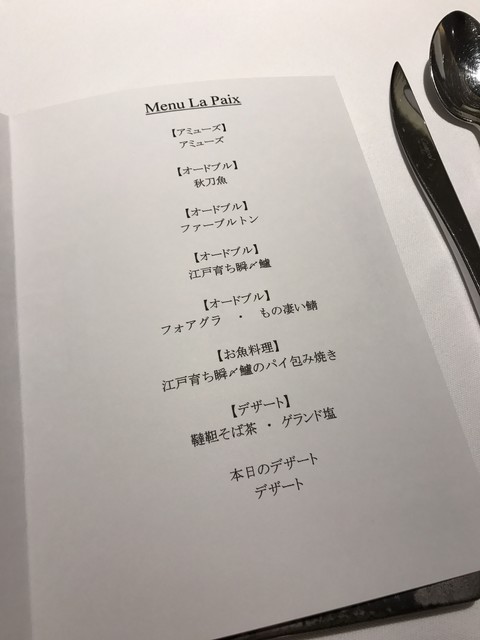 Menu La Paix
【アミューズ】
アミューズ
【オードブル】
秋刀魚
【オードブル】
ファーブルトン
【オードブル】
江戸育ち瞬〆鱸
【オードブル】
フォアグラ ・ もの凄い鯖
【お魚料理】
江戸育ち瞬〆鱸のパイ包み焼き
【デザート】
韃靼そば茶 ・ ゲランド塩
本日のデザート
デザート